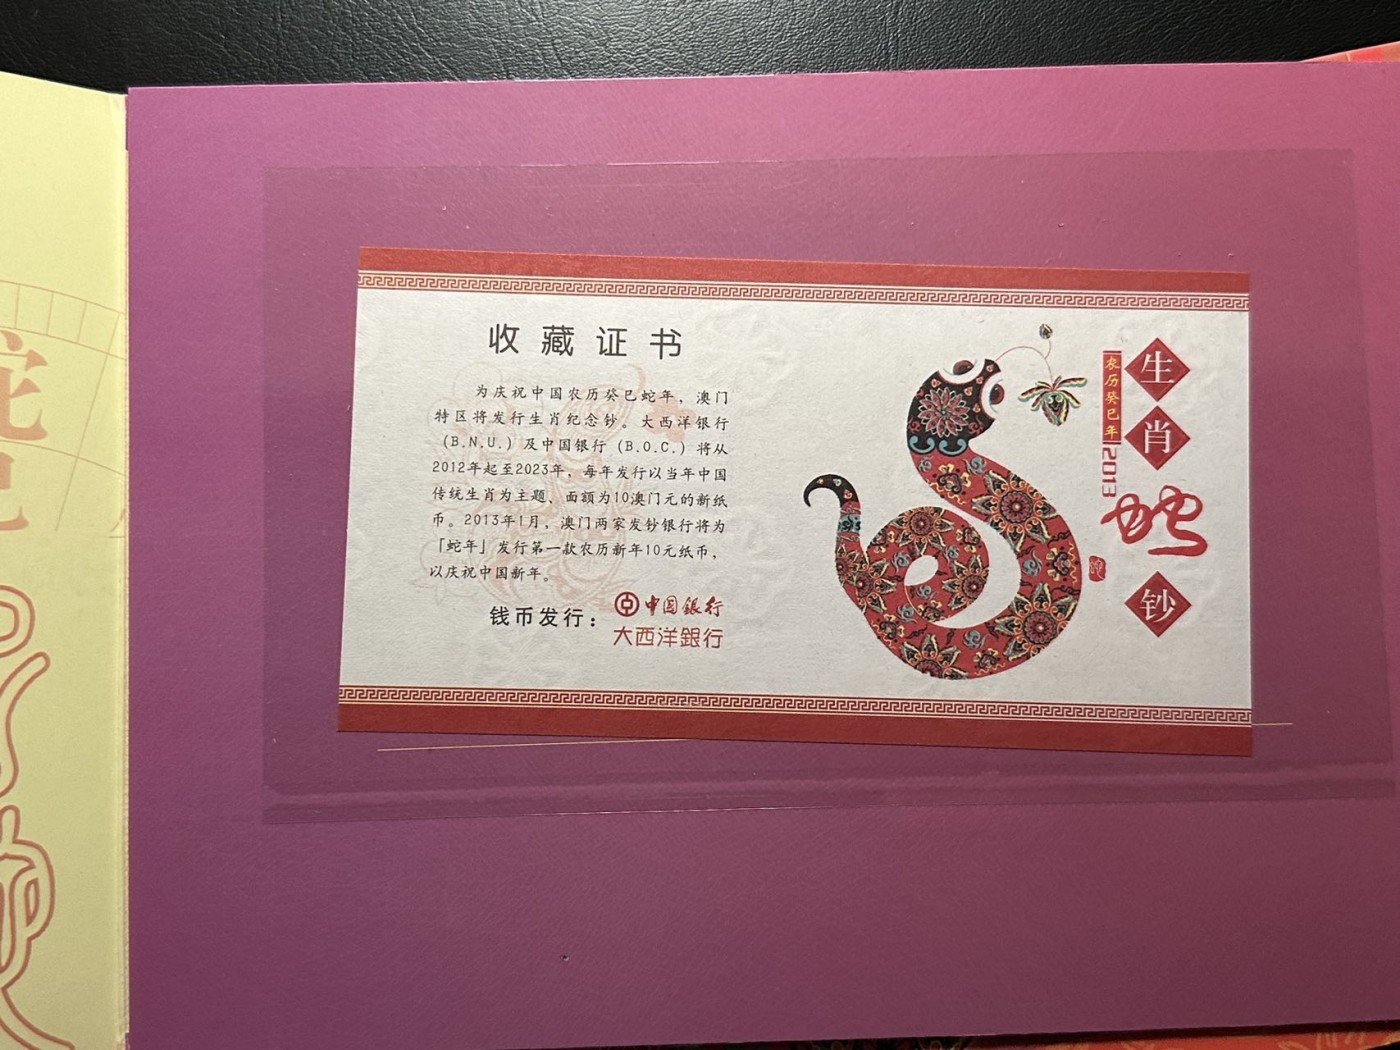 收藏证书
为庆祝中国农历癸巳蛇年，澳门
特区将发行生肖纪念钞。大西洋银行
（B.N.U.）及中国银行（B.O.C.）将从
2012年起至2023年，每年发行以当年中国
传统生肖为主题、面额为10澳门元的新纸
币。2013年1月，澳门两家发钞银行将为
「蛇年」发行第一款农历新年10元纸币，
以庆祝中国新年。
钱币发行：
中国銀行
大西洋銀行
生肖蛇钞
农历癸巳年2013